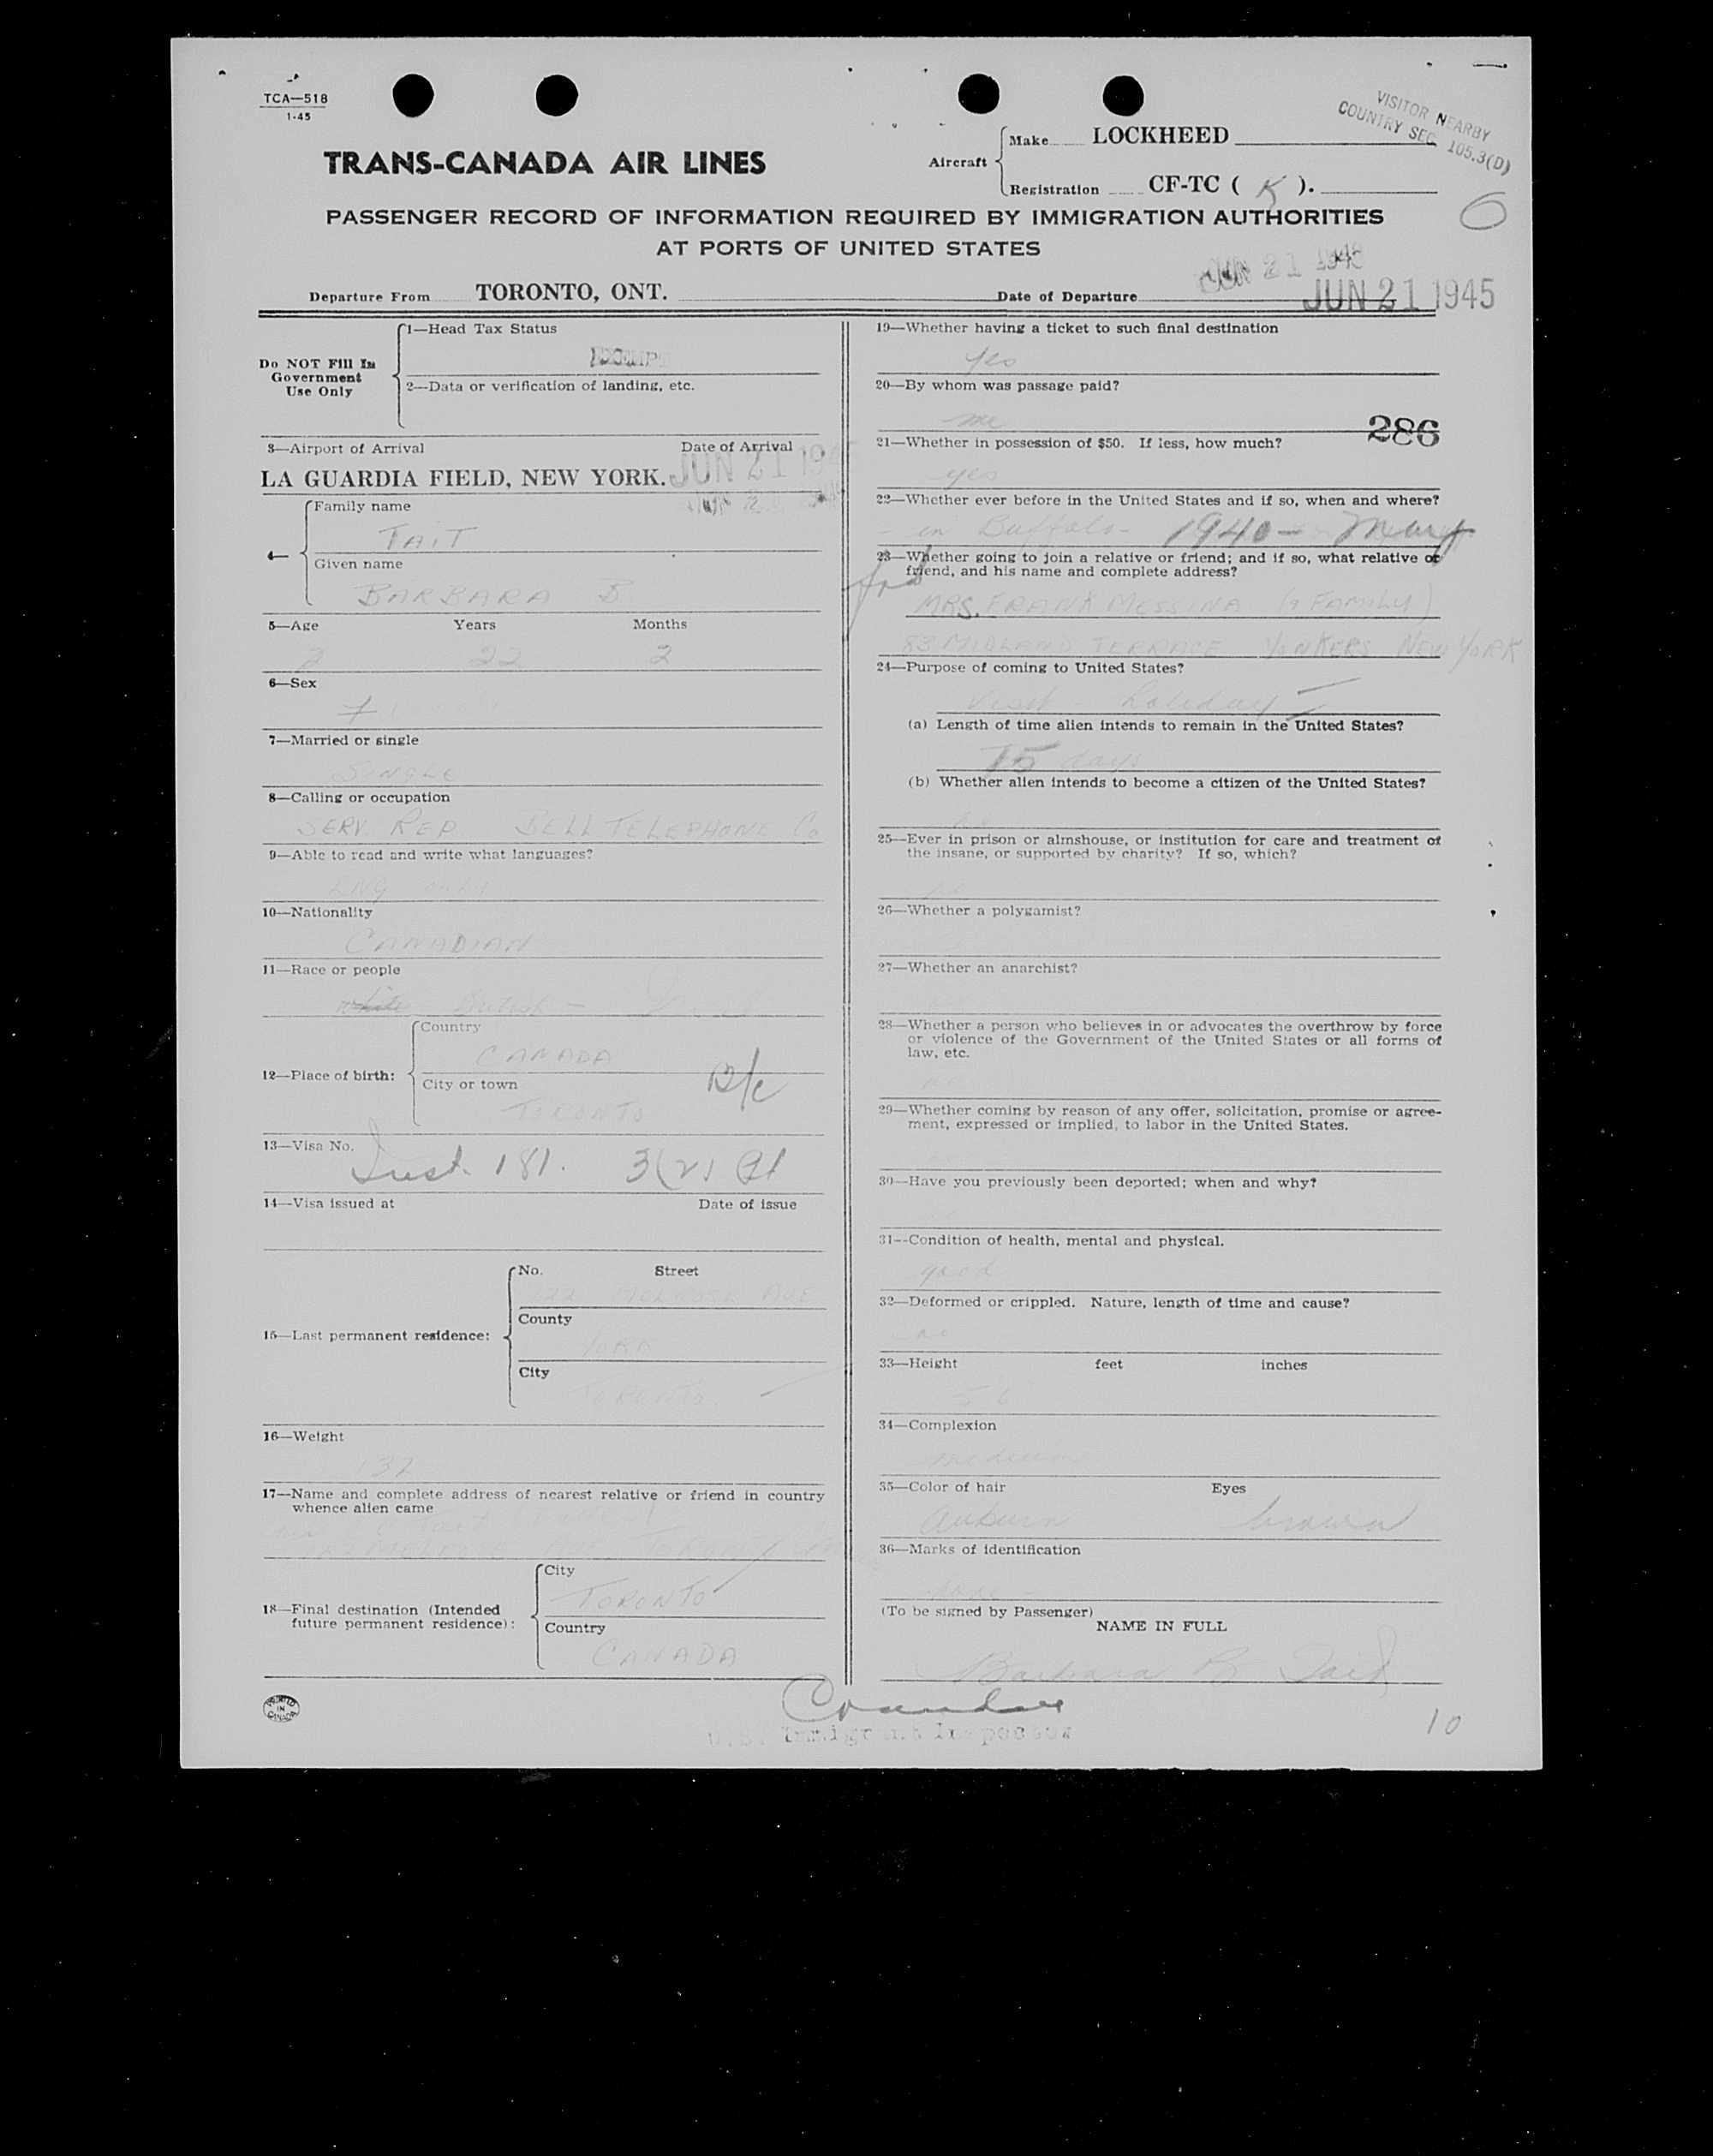 TCA—518
1-45
TRANS-CANADA AIR LINES
Aircraft
Make LOCKHEED
Registration CF-TC ( K ).
VISITOR NEARBY
COUNTRY SEC 105.3(D)
PASSENGER RECORD OF INFORMATION REQUIRED BY IMMIGRATION AUTHORITIES
AT PORTS OF UNITED STATES
Departure From TORONTO, ONT. Date of Departure JUN 21 1945
Do NOT Fill In
Government
Use Only
1—Head Tax Status
2—Data or verification of landing, etc.
3—Airport of Arrival Date of Arrival
LA GUARDIA FIELD, NEW YORK. JUN 21 1945
4—
Family name
TAIT
Given name
BARBARA B
5—Age Years Months
22 2
6—Sex
7—Married or single
SINGLE
8—Calling or occupation
SERV. REP BELL TELEPHONE Co
9—Able to read and write what languages?
ENG only
10—Nationality
CANADIAN
11—Race or people
white British —
12—Place of birth:
Country
CANADA
City or town
TORONTO
B/C
13—Visa No.
Inst. 181. 3(2)
14—Visa issued at Date of issue
15—Last permanent residence:
No. Street
MELROSE AVE
County
YORK
City
TORONTO
16—Weight
132
17—Name and complete address of nearest relative or friend in country
whence alien came
MELROSE AVE TORONTO
18—Final destination (Intended
future permanent residence):
City
TORONTO
Country
CANADA
PRINTED
IN
CANADA
19—Whether having a ticket to such final destination
yes
20—By whom was passage paid?
me
286
21—Whether in possession of $50. If less, how much?
yes
22—Whether ever before in the United States and if so, when and where?
- in Buffalo - 1940 —
23—Whether going to join a relative or friend; and if so, what relative or
friend, and his name and complete address?
MRS. FRANK MESSINA (& FAMILY)
83 MIDLAND TERRACE YONKERS NEW YORK
24—Purpose of coming to United States?
Visit - holiday
(a) Length of time alien intends to remain in the United States?
15 days
(b) Whether alien intends to become a citizen of the United States?
no
25—Ever in prison or almshouse, or institution for care and treatment of
the insane, or supported by charity? If so, which?
no
26—Whether a polygamist?
27—Whether an anarchist?
28—Whether a person who believes in or advocates the overthrow by force
or violence of the Government of the United States or all forms of
law, etc.
no
29—Whether coming by reason of any offer, solicitation, promise or agree-
ment, expressed or implied, to labor in the United States.
30—Have you previously been deported; when and why?
31—Condition of health, mental and physical.
good
32—Deformed or crippled. Nature, length of time and cause?
no
33—Height feet inches
5 6
34—Complexion
medium
35—Color of hair Eyes
auburn brown
36—Marks of identification
none -
(To be signed by Passenger)
NAME IN FULL
Barbara B. Tait
U.S. Immigrant Inspector
10